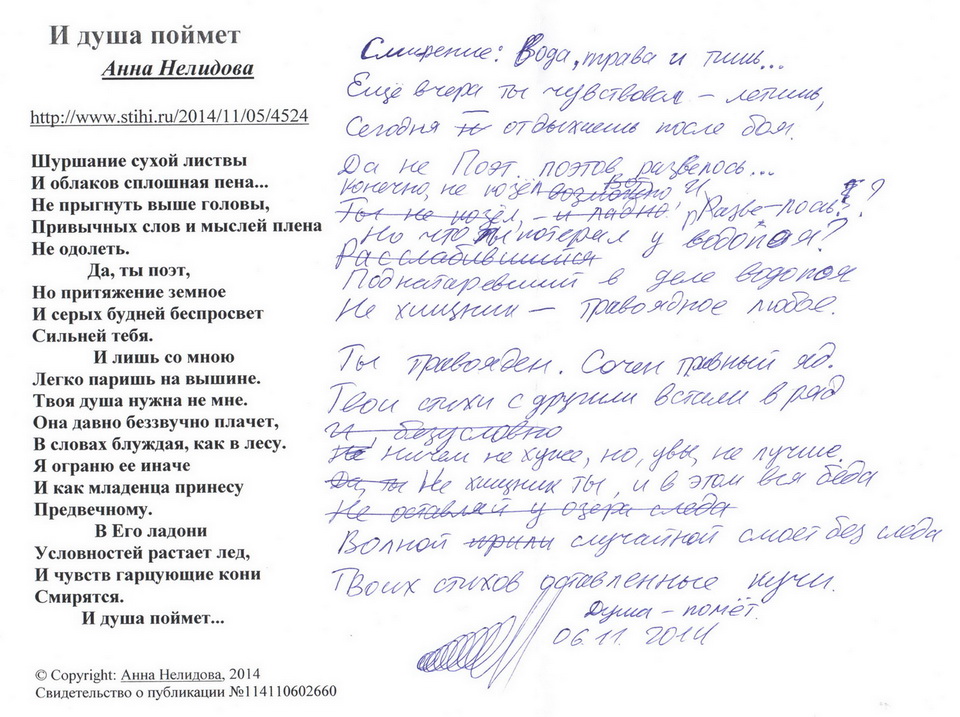 И душа поймет
Анна Нелидова
http://www.stihi.ru/2014/11/05/4524
Шуршание сухой листвы
И облаков сплошная пена...
Не прыгнуть выше головы,
Привычных слов и мыслей плена
Не одолеть.
Да, ты поэт,
Но притяжение земное
И серых будней беспросвет
Сильней тебя.
И лишь со мною
Легко паришь на вышине.
Твоя душа нужна не мне.
Она давно беззвучно плачет,
В словах блуждая, как в лесу.
Я ограню ее иначе
И как младенца принесу
Предвечному.
В Его ладони
Условностей растает лед,
И чувств гарцующие кони
Смирятся.
И душа поймет...
© Copyright: Анна Нелидова, 2014
Свидетельство о публикации №114110602660
Смирение: Вода, трава и тишь...
Ещё вчера ты чувствовал – летишь,
Сегодня отдыхаешь после боя.
Да не Поэт. поэтов развелось...
Конечно, не козёл
Ты не козёл, – и ладно, Разве – лось??
Но что ты потерял у водопоя?
Расслабившийся
Поднаторевший в деле водопоя
Не хищник – травоядное любое.
Ты травояден. Сочен травный яд.
Твои стихи с другими встали в ряд
И, безусловно
Не ничем не хуже, но, увы, не лучше.
Да, ты Не хищник ты, и в этом вся беда
Не оставляй у озера следа
Волной случайной смоет без следа
Твоих стихов оставленные кучи.
Душа – помёт.
06.11.2014